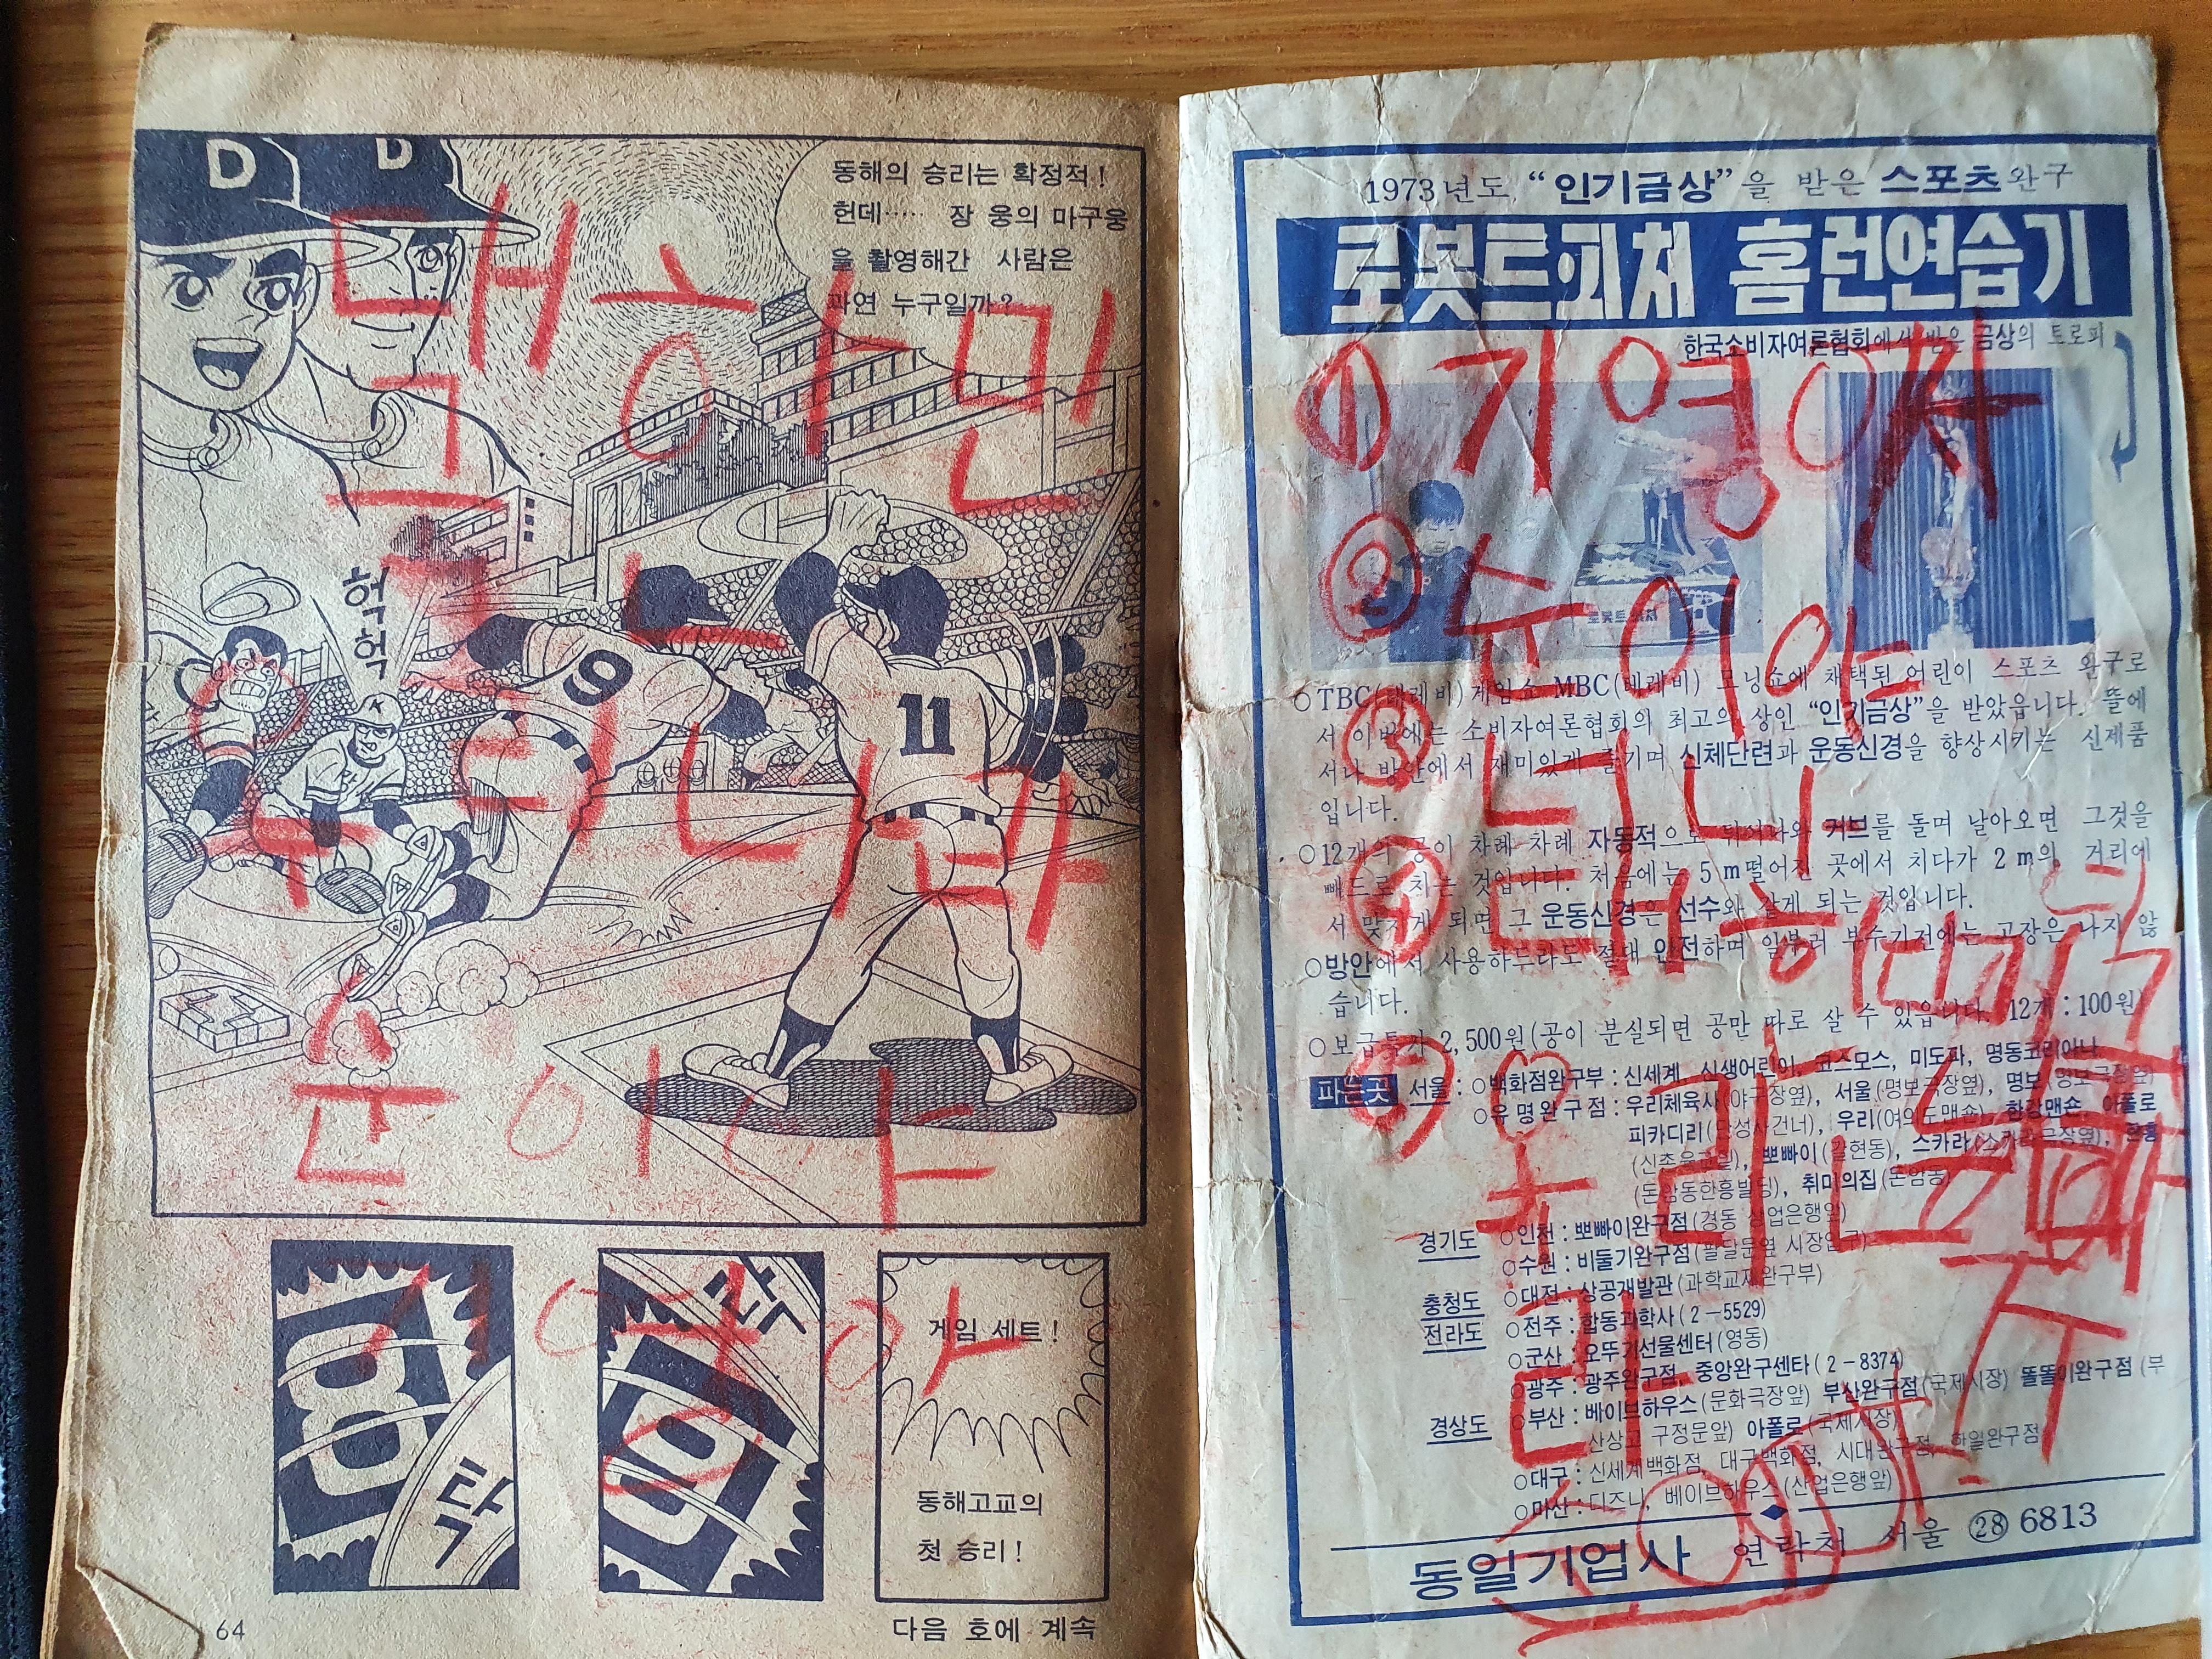 D
D
동해의 승리는 확정적!
헌데…… 장 웅의 마구웅
을 촬영해간 사람은
과연 누구일까?
헉
헉
K
9
11
대한민
국
우리나라
순이야
기영아
8
탁
탁
9
게임 세트!
동해고교의
첫 승리!
64
다음 호에 계속
1973년도 “인기금상”을 받은 스포츠완구
로보트피처 홈런연습기
한국소비자여론협회에서 받은 금상의 트로피
① 기영아
② 순이야
③
④ 대한
로보트피처
○TBC(테레비) 게임쇼 MBC(테레비) 모닝쇼에 채택된 어린이 스포츠 완구로
서 이번에는 소비자여론협회의 최고의 상인 “인기금상”을 받았읍니다. 뜰에
서나 방안에서 재미있게 즐기며 신체단련과 운동신경을 향상시키는 신제품
입니다.
○12개의 공이 차례 차례 자동적으로 튀어나와 커브를 돌며 날아오면 그것을
빠드로 치는 것입니다. 처음에는 5m떨어진 곳에서 치다가 2m의 거리에
서 맞치게 되면 그 운동신경은 선수와 같게 되는 것입니다.
○방안에서 사용하드라도 절대 안전하며 일부러 부수기전에는 고장은 나지 않
습니다.
○보급특가 2,500원(공이 분실되면 공만 따로 살 수 있읍니다. 12개:100원)
파는곳 서울: ○백화점완구부: 신세계, 신생어린이, 코스모스, 미도파, 명동코리아나
○유명완구점: 우리체육사(야구장옆), 서울(명보극장옆), 명보(명보극장옆)
피카디리(단성사건너), 우리(여의도맨숀), 한강맨숀, 아폴로
뽀빠이(갈현동), 스카라(스카라극장옆),
(돈암동한흥빌딩), 취미의집(돈암동)
경기도 ○인천: 뽀빠이완구점(경동 상업은행앞)
○수원: 비둘기완구점(팔달문옆 시장입구)
충청도 ○대전: 상공개발관(과학교재완구부)
전라도 ○전주: 합동과학사(2-5529)
○군산: 오뚜기선물센터(영동)
○광주: 광주완구점, 중앙완구센타(2-8374)
경상도 ○부산: 베이브하우스(문화극장앞) 부산완구점(국제시장) 똘똘이완구점(부
산상고 구정문앞) 아폴로(국제시장)
○대구: 신세계백화점, 대구백화점, 시대완구점, 한일완구점
○마산: 디즈니, 베이브하우스(산업은행앞)
동일기업사 연락처 서울 ㉘ 6813